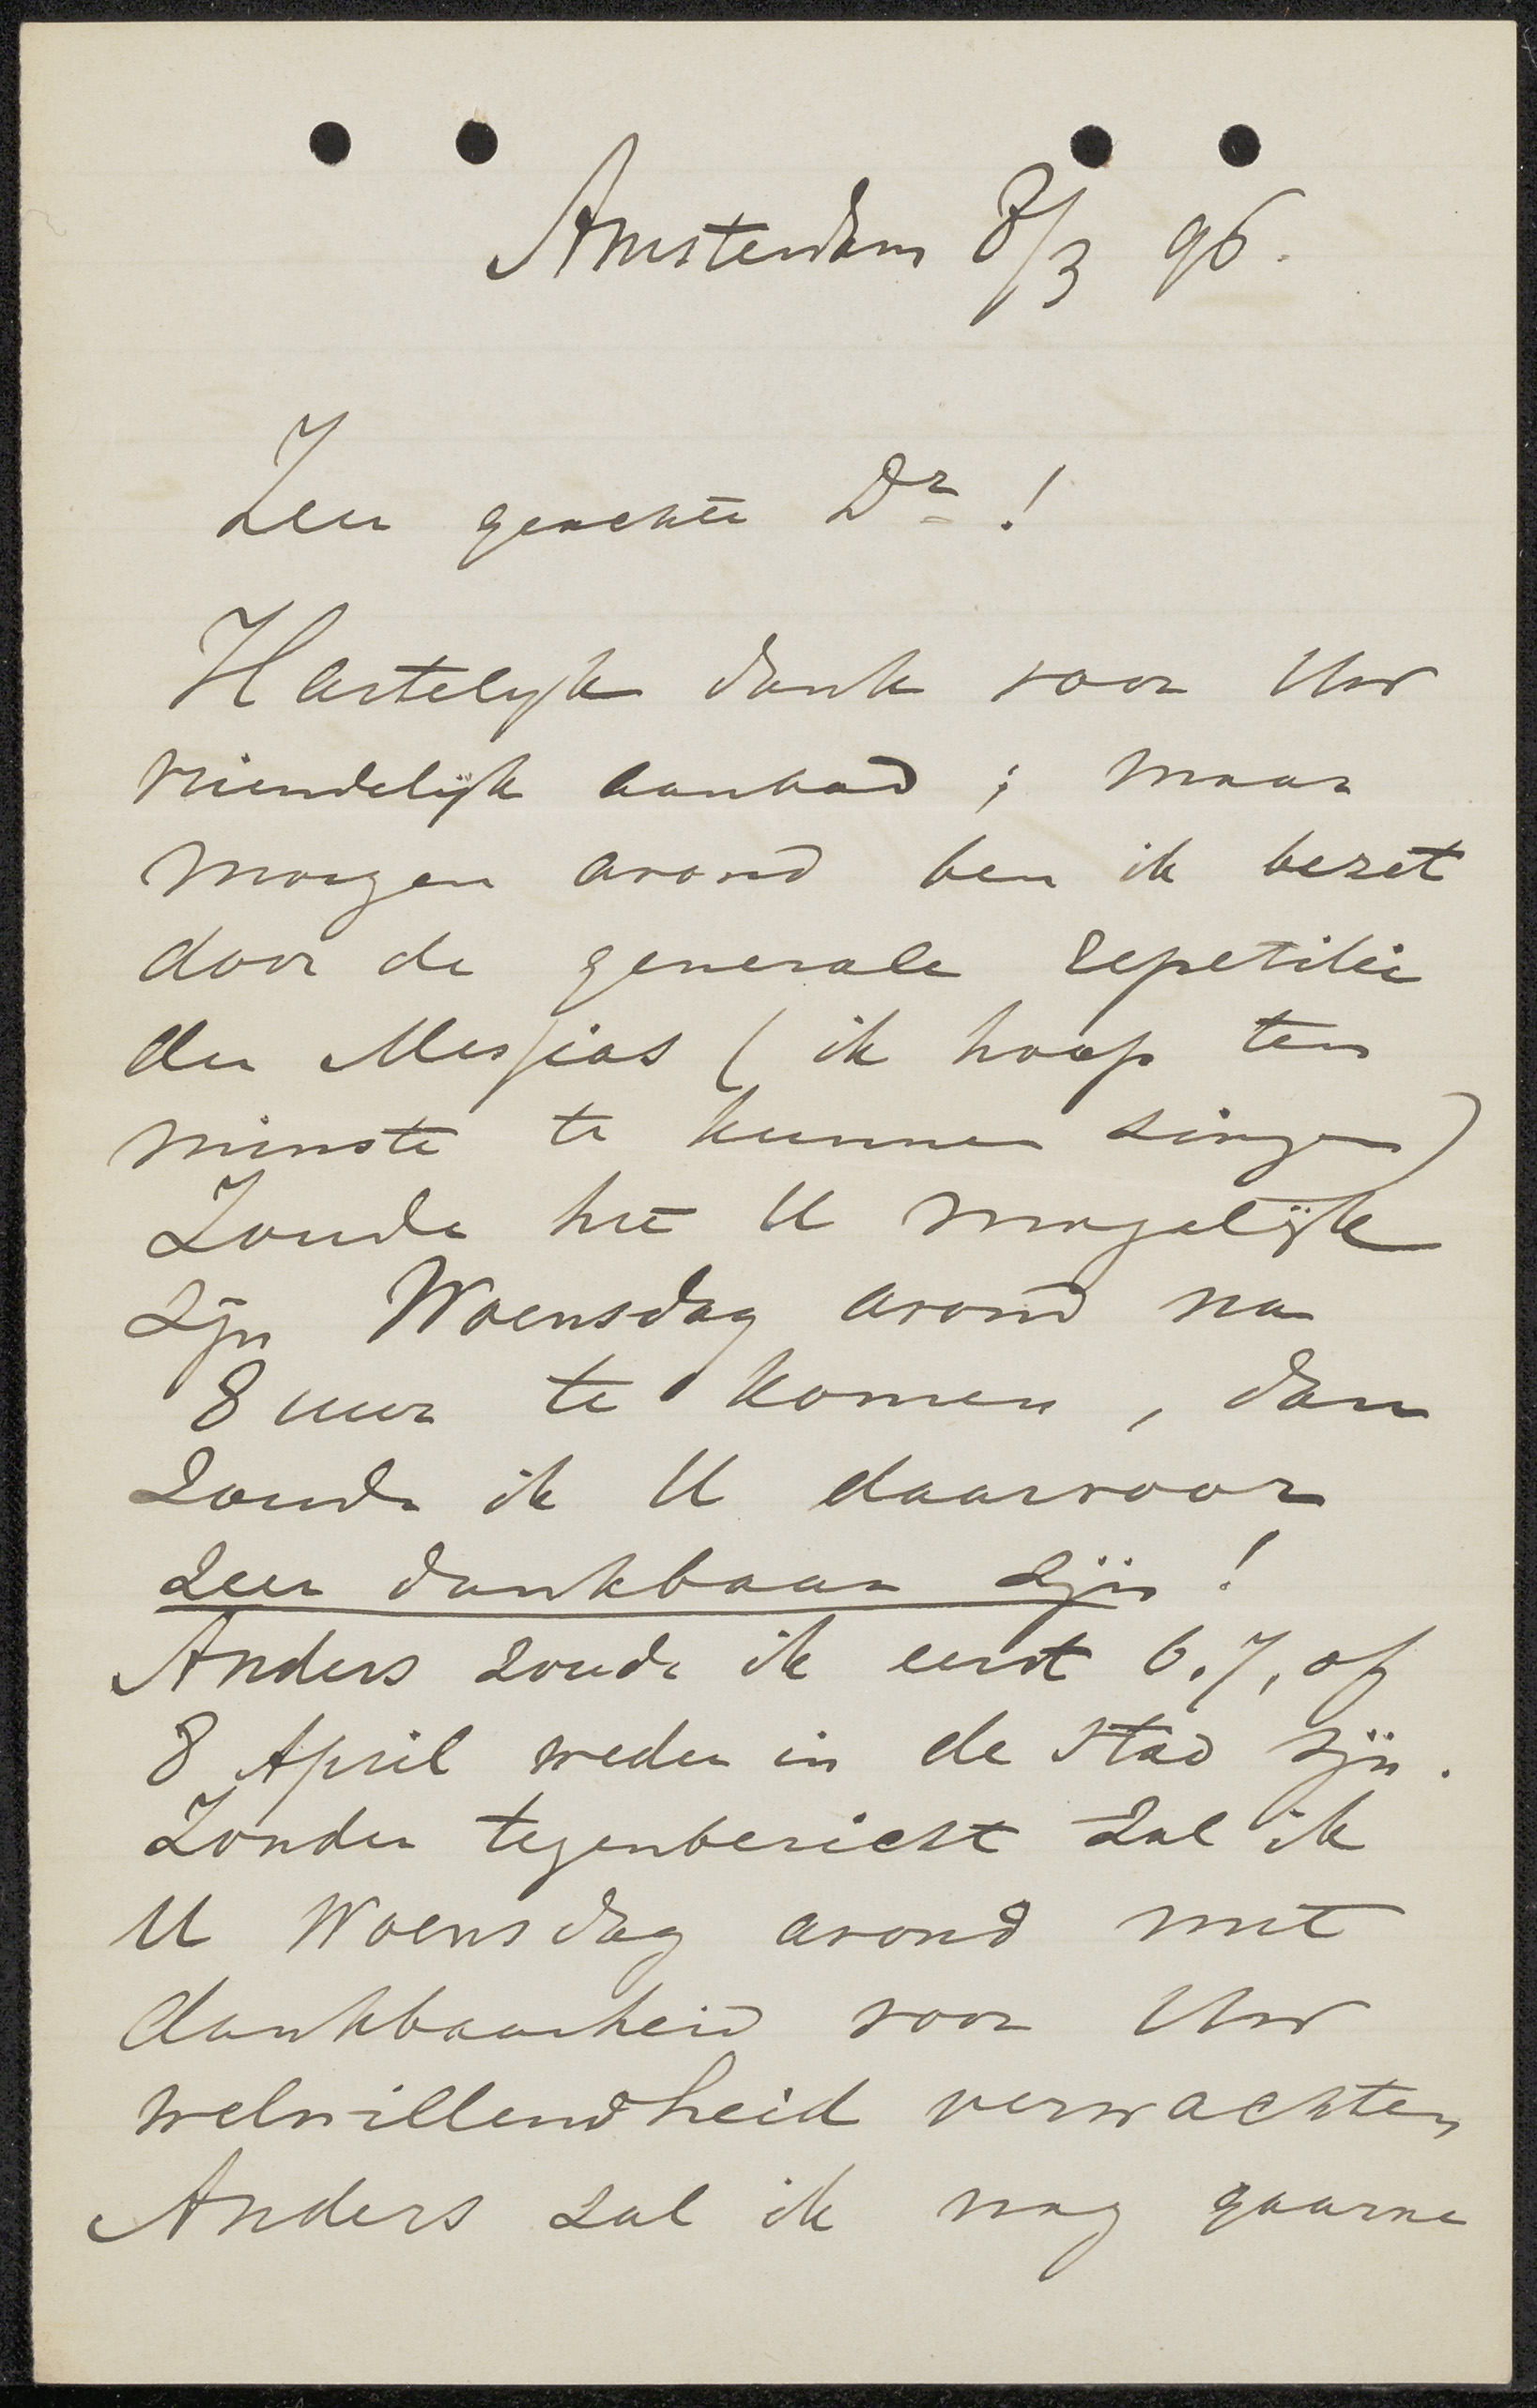 Amsterdam 8/3 96.
Zeer geachte Dr !
Hartelijk dank voor Uw
vriendelijk aanbod ; maar
morgen avond ben ik bezet
door de generale repetitie
der Messias ( ik hoop ten
minste te kunnen zingen )
Zoude het U mogelijk
zijn Woensdag avond na
8 uur te komen , dan
zoude ik U daarvoor
zeer dankbaar zijn !
Anders zoude ik eerst 6. 7, of
8 April weder in de stad zijn .
Zonder tegenbericht zal ik
U Woensdag avond met
dankbaarheid voor Uw
welwillendheid verwachten
Anders zal ik nog gaarne